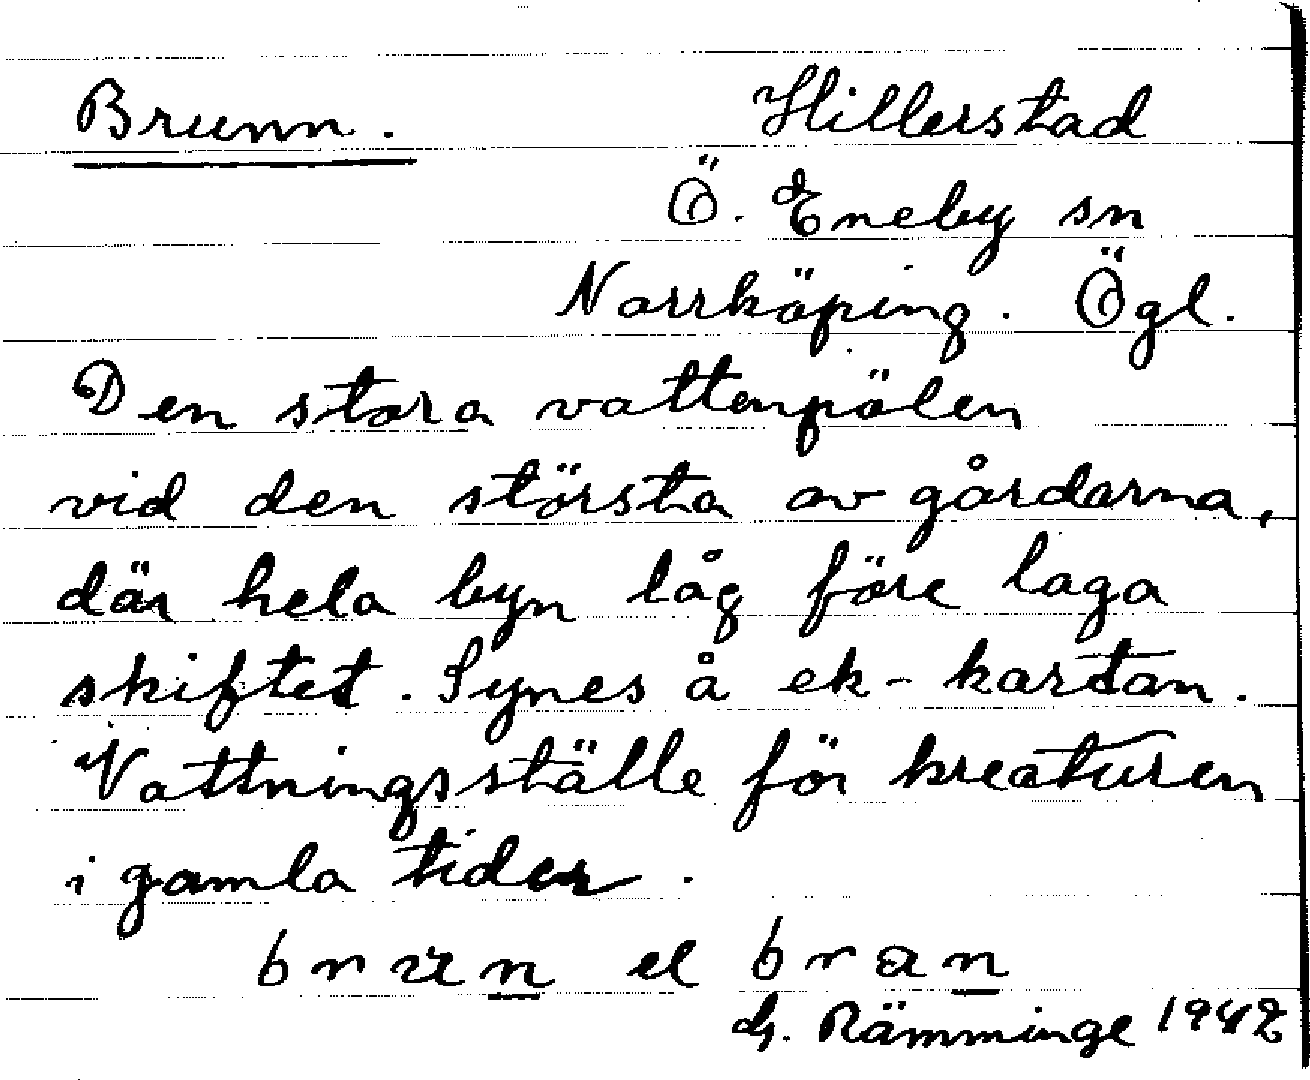 Brunn. Hillerstad
Ö. Eneby sn
Norrköping. Ögl.
Den stora vattenpölen
vid den största av gårdarna,
där hela byn låg före laga
skiftet. Synes å ek-kartan.
Vattningsställe för kreaturen
i gamla tider.
el
G. Rämminge 1942